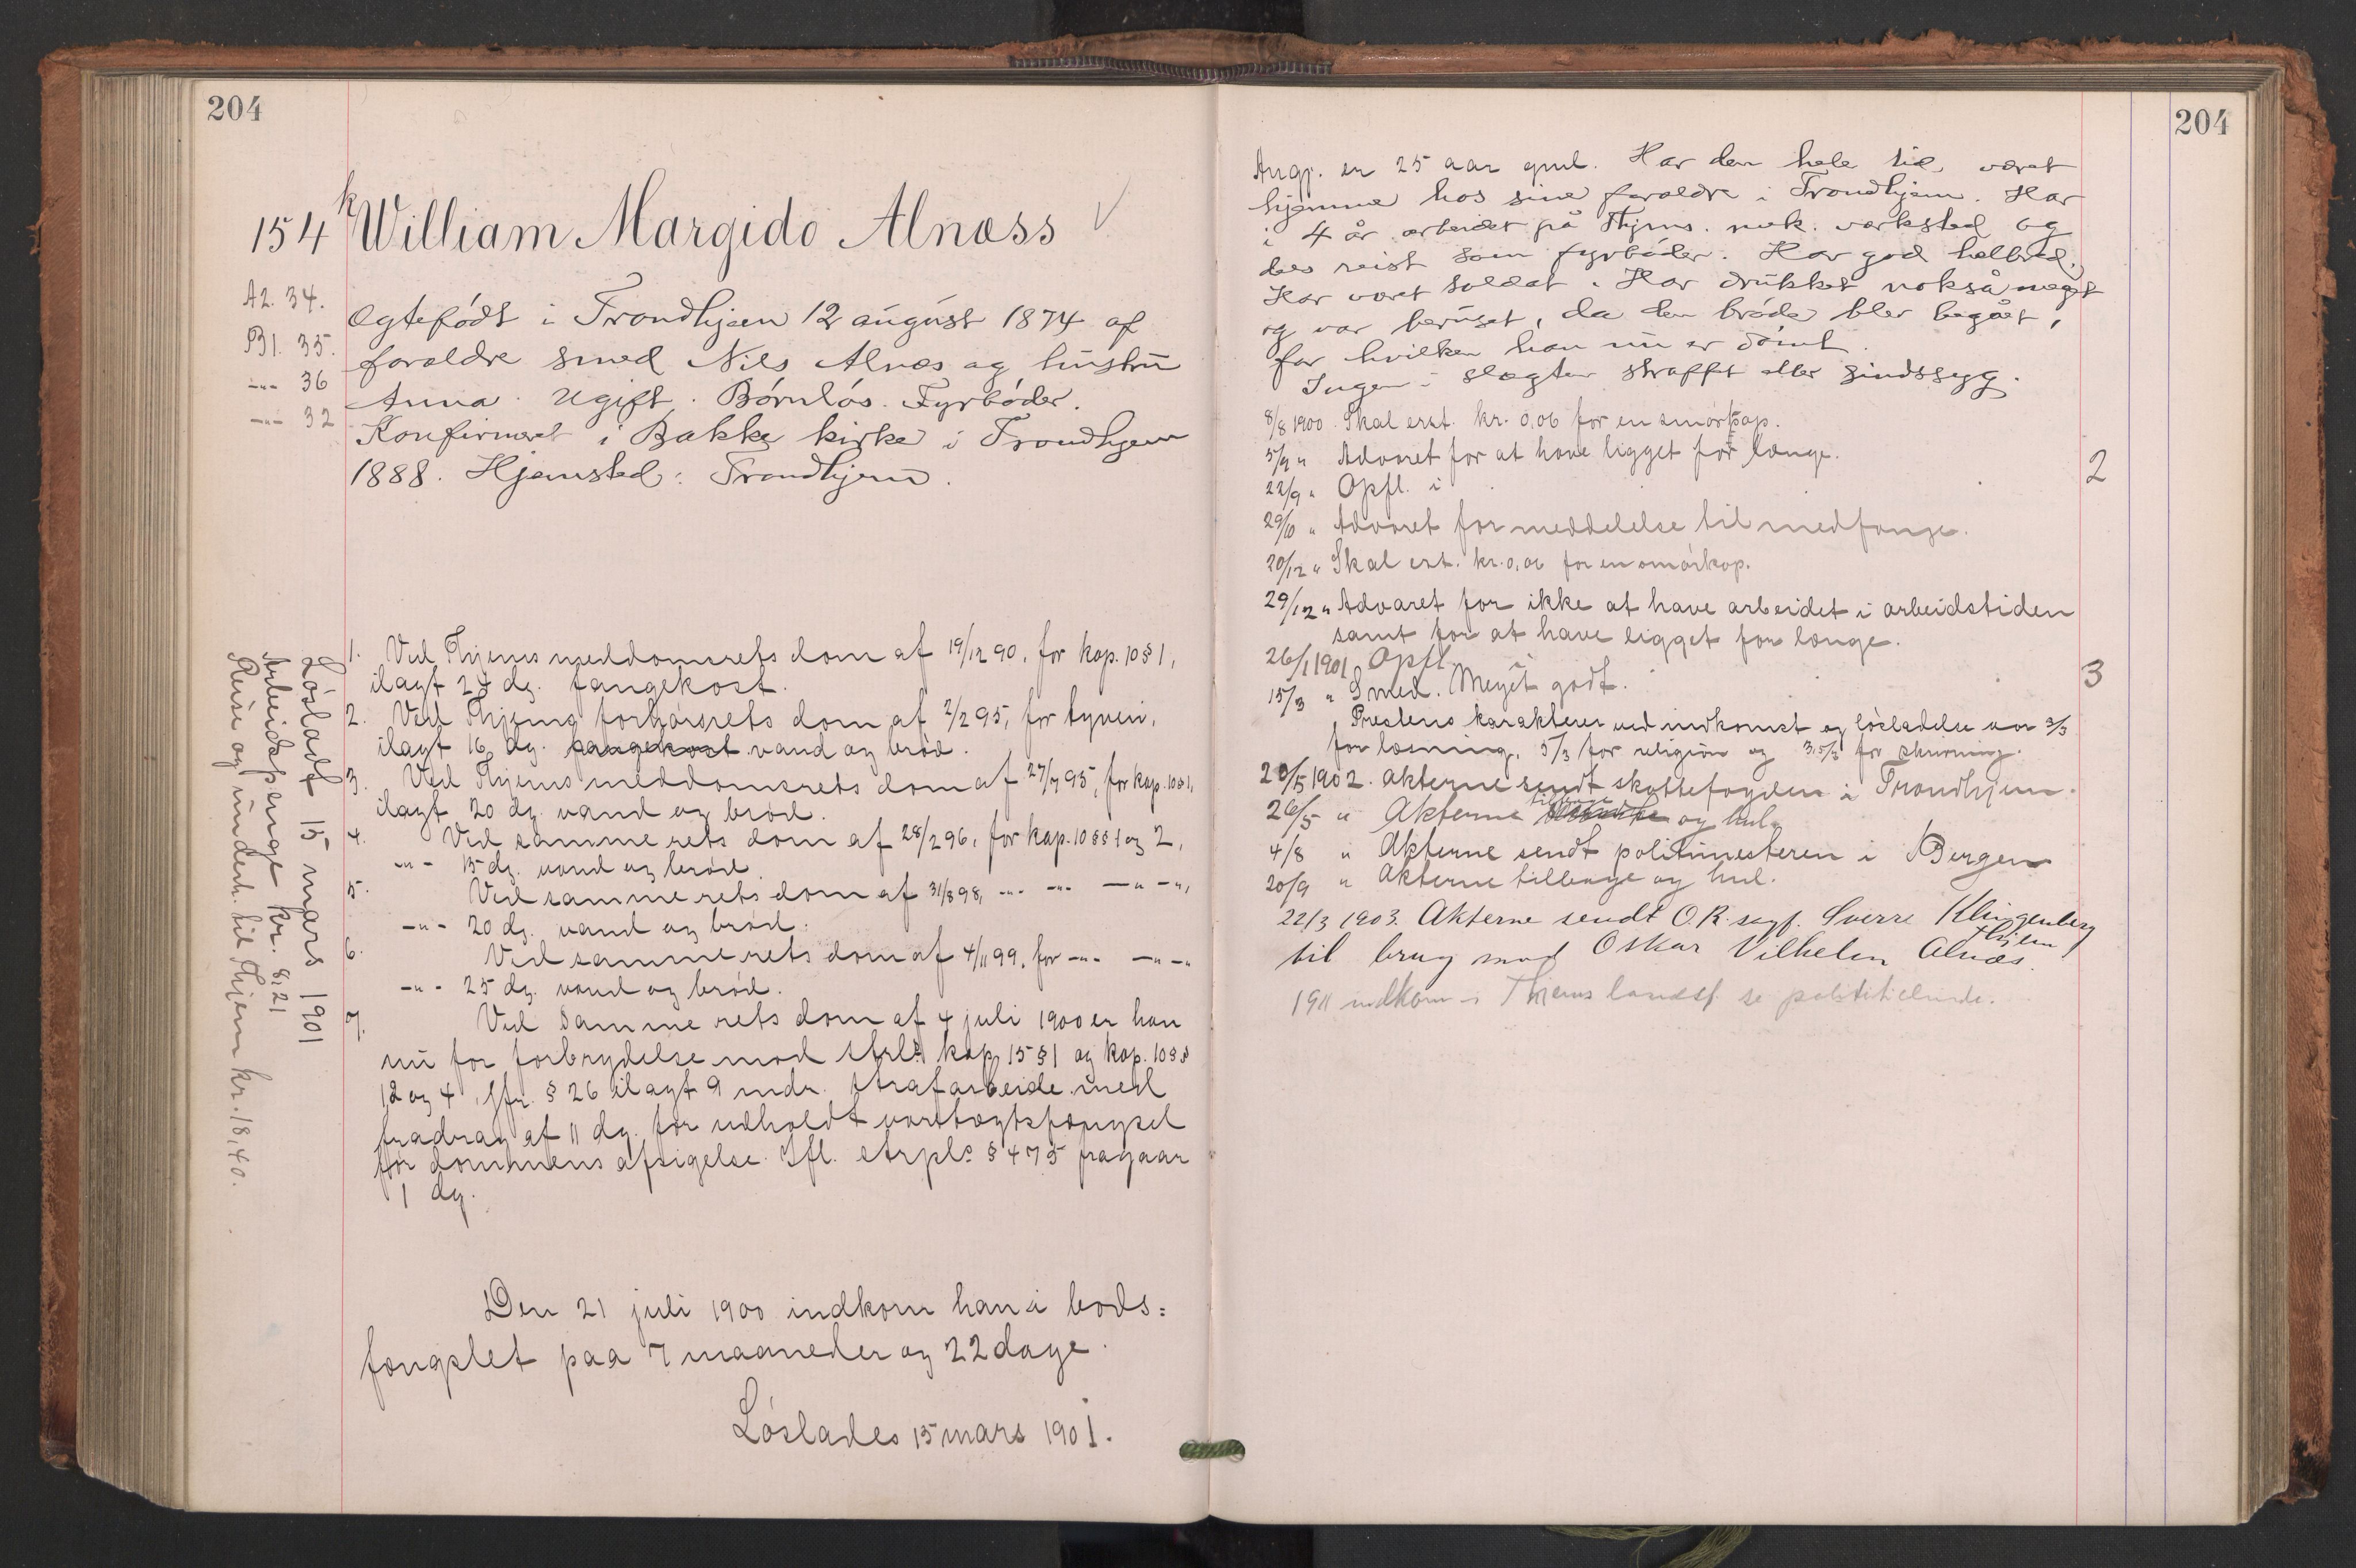 204
154 k William Margido Alnæss
A2. 34.
B1. 35.
-"- 36
-"- 32
Ægtefødt i Trondhjem 12 august 1874 af
forældre smed Nils Alnæs og hustru
Anna. Ugift. Børnløs. Fyrbøder.
Konfirmeret i Bakke kirke i Trondhjem
1888. Hjemsted: Trondhjem.
1. Ved Thjems meddomsrets dom af 19/12 90, for kap. 10 § 1,
ilagt 24 dg. fangekost.
2. Ved Thjems forhørsrets dom af 2/2 95, for tyveri,
ilagt 16 dg. fangekost vand og brød.
3. Ved Thjems meddomsrets dom af 27/7 95, for kap. 10 § 1,
ilagt 20 dg. vand og brød.
4. Ved samme rets dom af 28/2 96, for kap. 10 §§ 1 og 2,
-"- 15 dg. vand og brød.
5. Ved samme rets dom af 31/8 98, -"- -"- -"- -"-,
-"- 20 dg. vand og brød.
6. Ved samme rets dom af 4/11 99, for -"- -"-"
-"- 25 dg. vand og brød.
7. Ved samme rets dom af 4 juli 1900 er han
nu for forbrydelse mod strls kap. 15 § 1 og kap. 10 §§
1, 2 og 4, jfr. § 26 ilagt 9 mdr. strafarbeide med
fradrag af 11 dg. for udholdt varetægtsfængsel
før dommens afsigelse. Ifl. strpls § 475 fragaar
1 dg.
Den 21 juli 1900 indkom han i bods=
fængslet paa 7 maaneder og 22 dage.
Løslades 15 mars 1901.
Løsladt 15 mars 1901
Arbeidspenge kr. 8,21
Reise og underh. til Thjem kr. 18,40.
204
Angj. er 25 aar gml. Har den hele tid været
hjemme hos sine forældre i Trondhjem. Har
i 4 år arbeidet på Thjems. mek. værksted og
dels reist som fyrbøder. Har god helbred.
Har været soldat. Har drukket nokså meget
og var beruset, da den brøde blev begået,
for hvilken han nu er dømt.
Ingen i slægten straffet eller sindssyg.
8/8 1900. Skal erst. kr. 0,06 for en smørkop.
5/9 " Advaret for at have ligget for længe.
22/9 " Opfl. i
2
29/10 " Advaret for meddelelse til medfange.
20/12 " Skal erst. kr. 0,06 for en smørkop.
29/12 " Advaret for ikke at have arbeidet i arbeidstiden
samt for at have ligget for længe.
26/1 1901 Opfl. i
3
15/3 " Smed. Meget godt.
Prestens karakterer ved indkomst og løsladelse var 3/3
for læsning, 5/3 for religion og 3,5/3 for skrivning.
20/5 1902. Akterne sendt skattefogden i Trondhjem.
26/5 " Akterne tilbage og hul.
4/8 " Akterne sendt politimesteren i Bergen
20/9 " Akterne tilbage og hul.
22/3 1903. Akterne sendt O.R. sagf. Sverre Klingenberg
Thjem
til brug mod Oskar Vilhelm Alnæs.
1911 indkom i Thjems landsf. se politititiende.